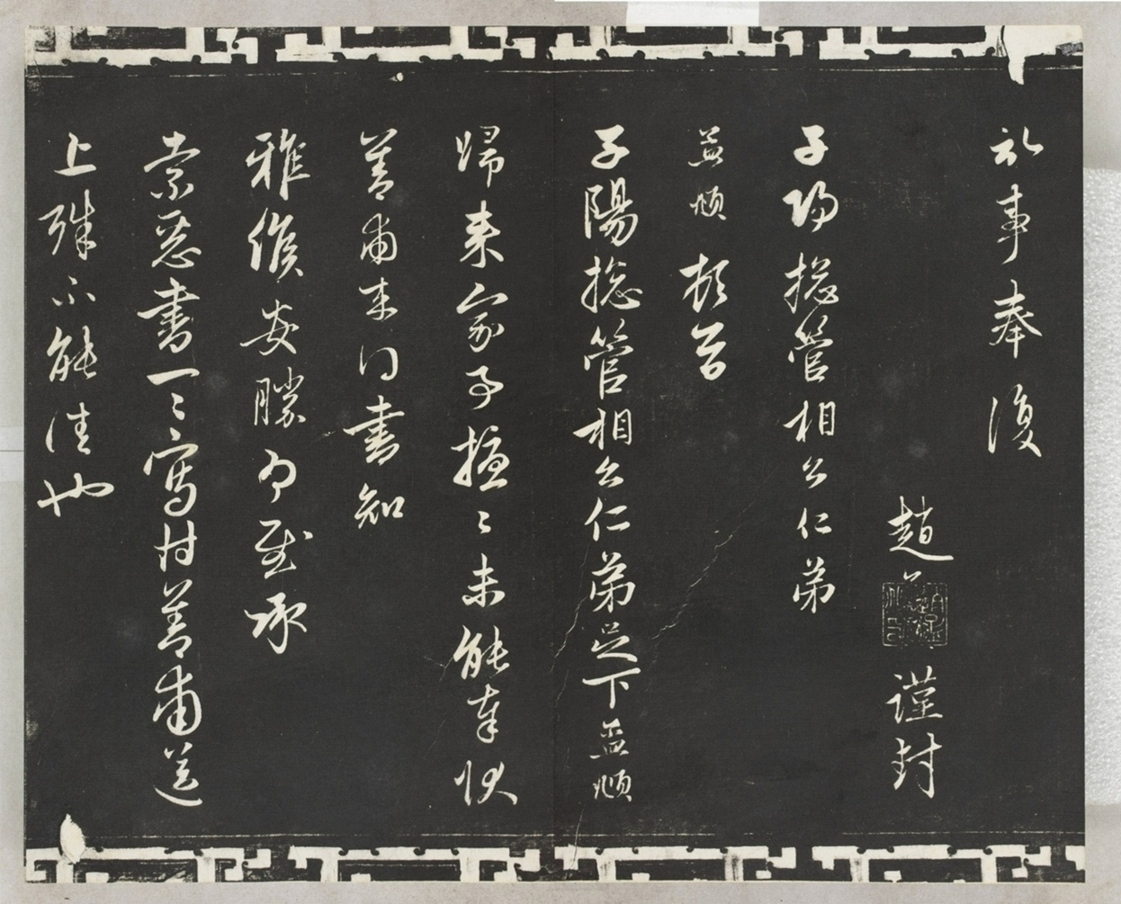 事奉復
趙 謹封
子陽揔管相公仁弟
孟頫頓首
子陽揔管相公仁弟足下孟頫
歸来家事擾〻未能奉状
善甫来得書知
雅候安勝為慰承
索惡書一〻寫付善甫送
上殊不能佳也